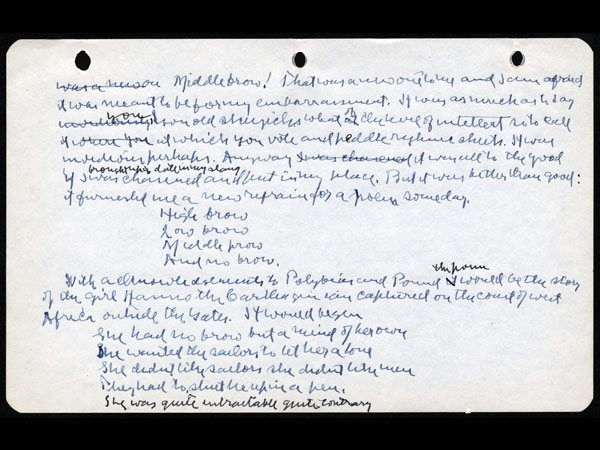 was a new on Middle brow! That was a new one to me and I am afraid
it was meant to be for my embarrassment. It was as much as to say
you
you old is the level of intellect so to call
it which you vote and peddle regime sheets. It was
invidious perhaps. Anyway I was chastened it was all to the good
brought up to date in my slang
if I was chastened and put in my place. But it was better than good:
it furnished me a new refrain for a poem some day.
High brow
Low brow
Middle brow
And no brow.
the poem
With acknowledgements to Polybius and Pound it would be the story
of the girl Hanno the Carthaginian captured on the coast of west
Africa outside the Gates. It would begin
She had no brow but a mind of her own
She wanted the sailors to let her alone
She didn't like sailors she didn't like men
They had to shut her up in a pen.
She was quite intractable quite contrary